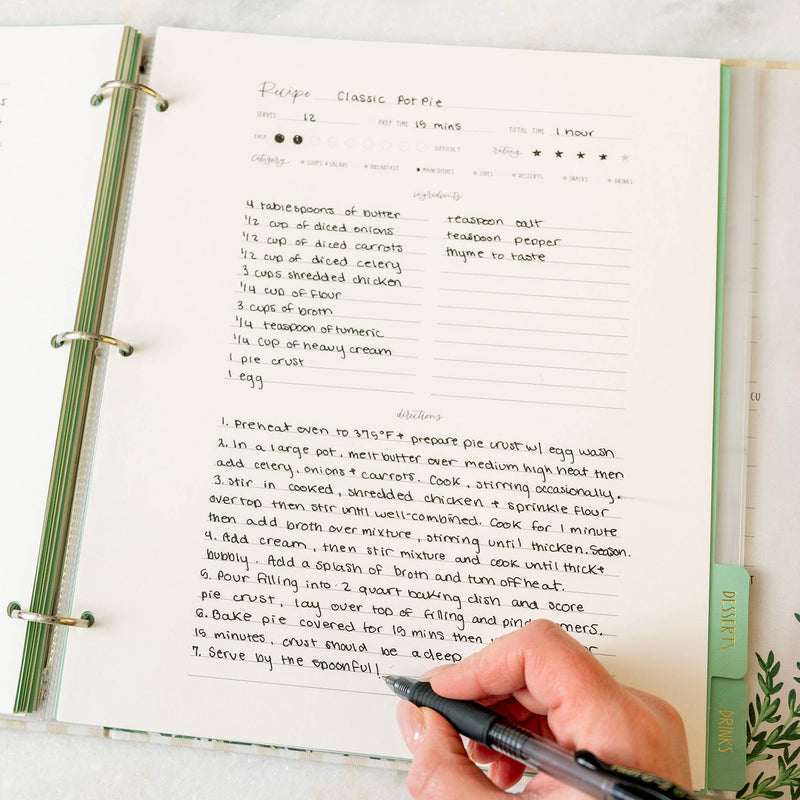 Recipe Classic Pot Pie
SERVES 12 PREP TIME 15 mins TOTAL TIME 1 hour
EASY DIFFICULT rating
category SOUPS & SALADS BREAKFAST MAIN DISHES SIDES DESSERTS SNACKS DRINKS
ingredients
4 tablespoons of butter
1/2 cup of diced onions
1/2 cup of diced carrots
1/2 cup of diced celery
3 cups shredded chicken
1/4 cup of flour
3 cups of broth
1/4 teaspoon of tumeric
1/4 cup of heavy cream
1 pie crust
1 egg
teaspoon salt
teaspoon pepper
thyme to taste
directions
1. Preheat oven to 375°F + prepare pie crust w/ egg wash
2. In a large pot, melt butter over medium high heat then
add celery, onions + carrots. Cook, stirring occasionally.
3. Stir in cooked, shredded chicken + sprinkle flour
over top then stir until well-combined. Cook for 1 minute
then add broth over mixture, stirring until thicken. Season.
4. Add cream, then stir mixture and cook until thick +
bubbly. Add a splash of broth and turn off heat.
5. Pour filling into 2 quart baking dish and score
pie crust, lay over top of filling and
6. Bake pie covered for 15 mins then
15 minutes, crust should be a deep
7. Serve by the spoonful!
DESSERTS
DRINKS